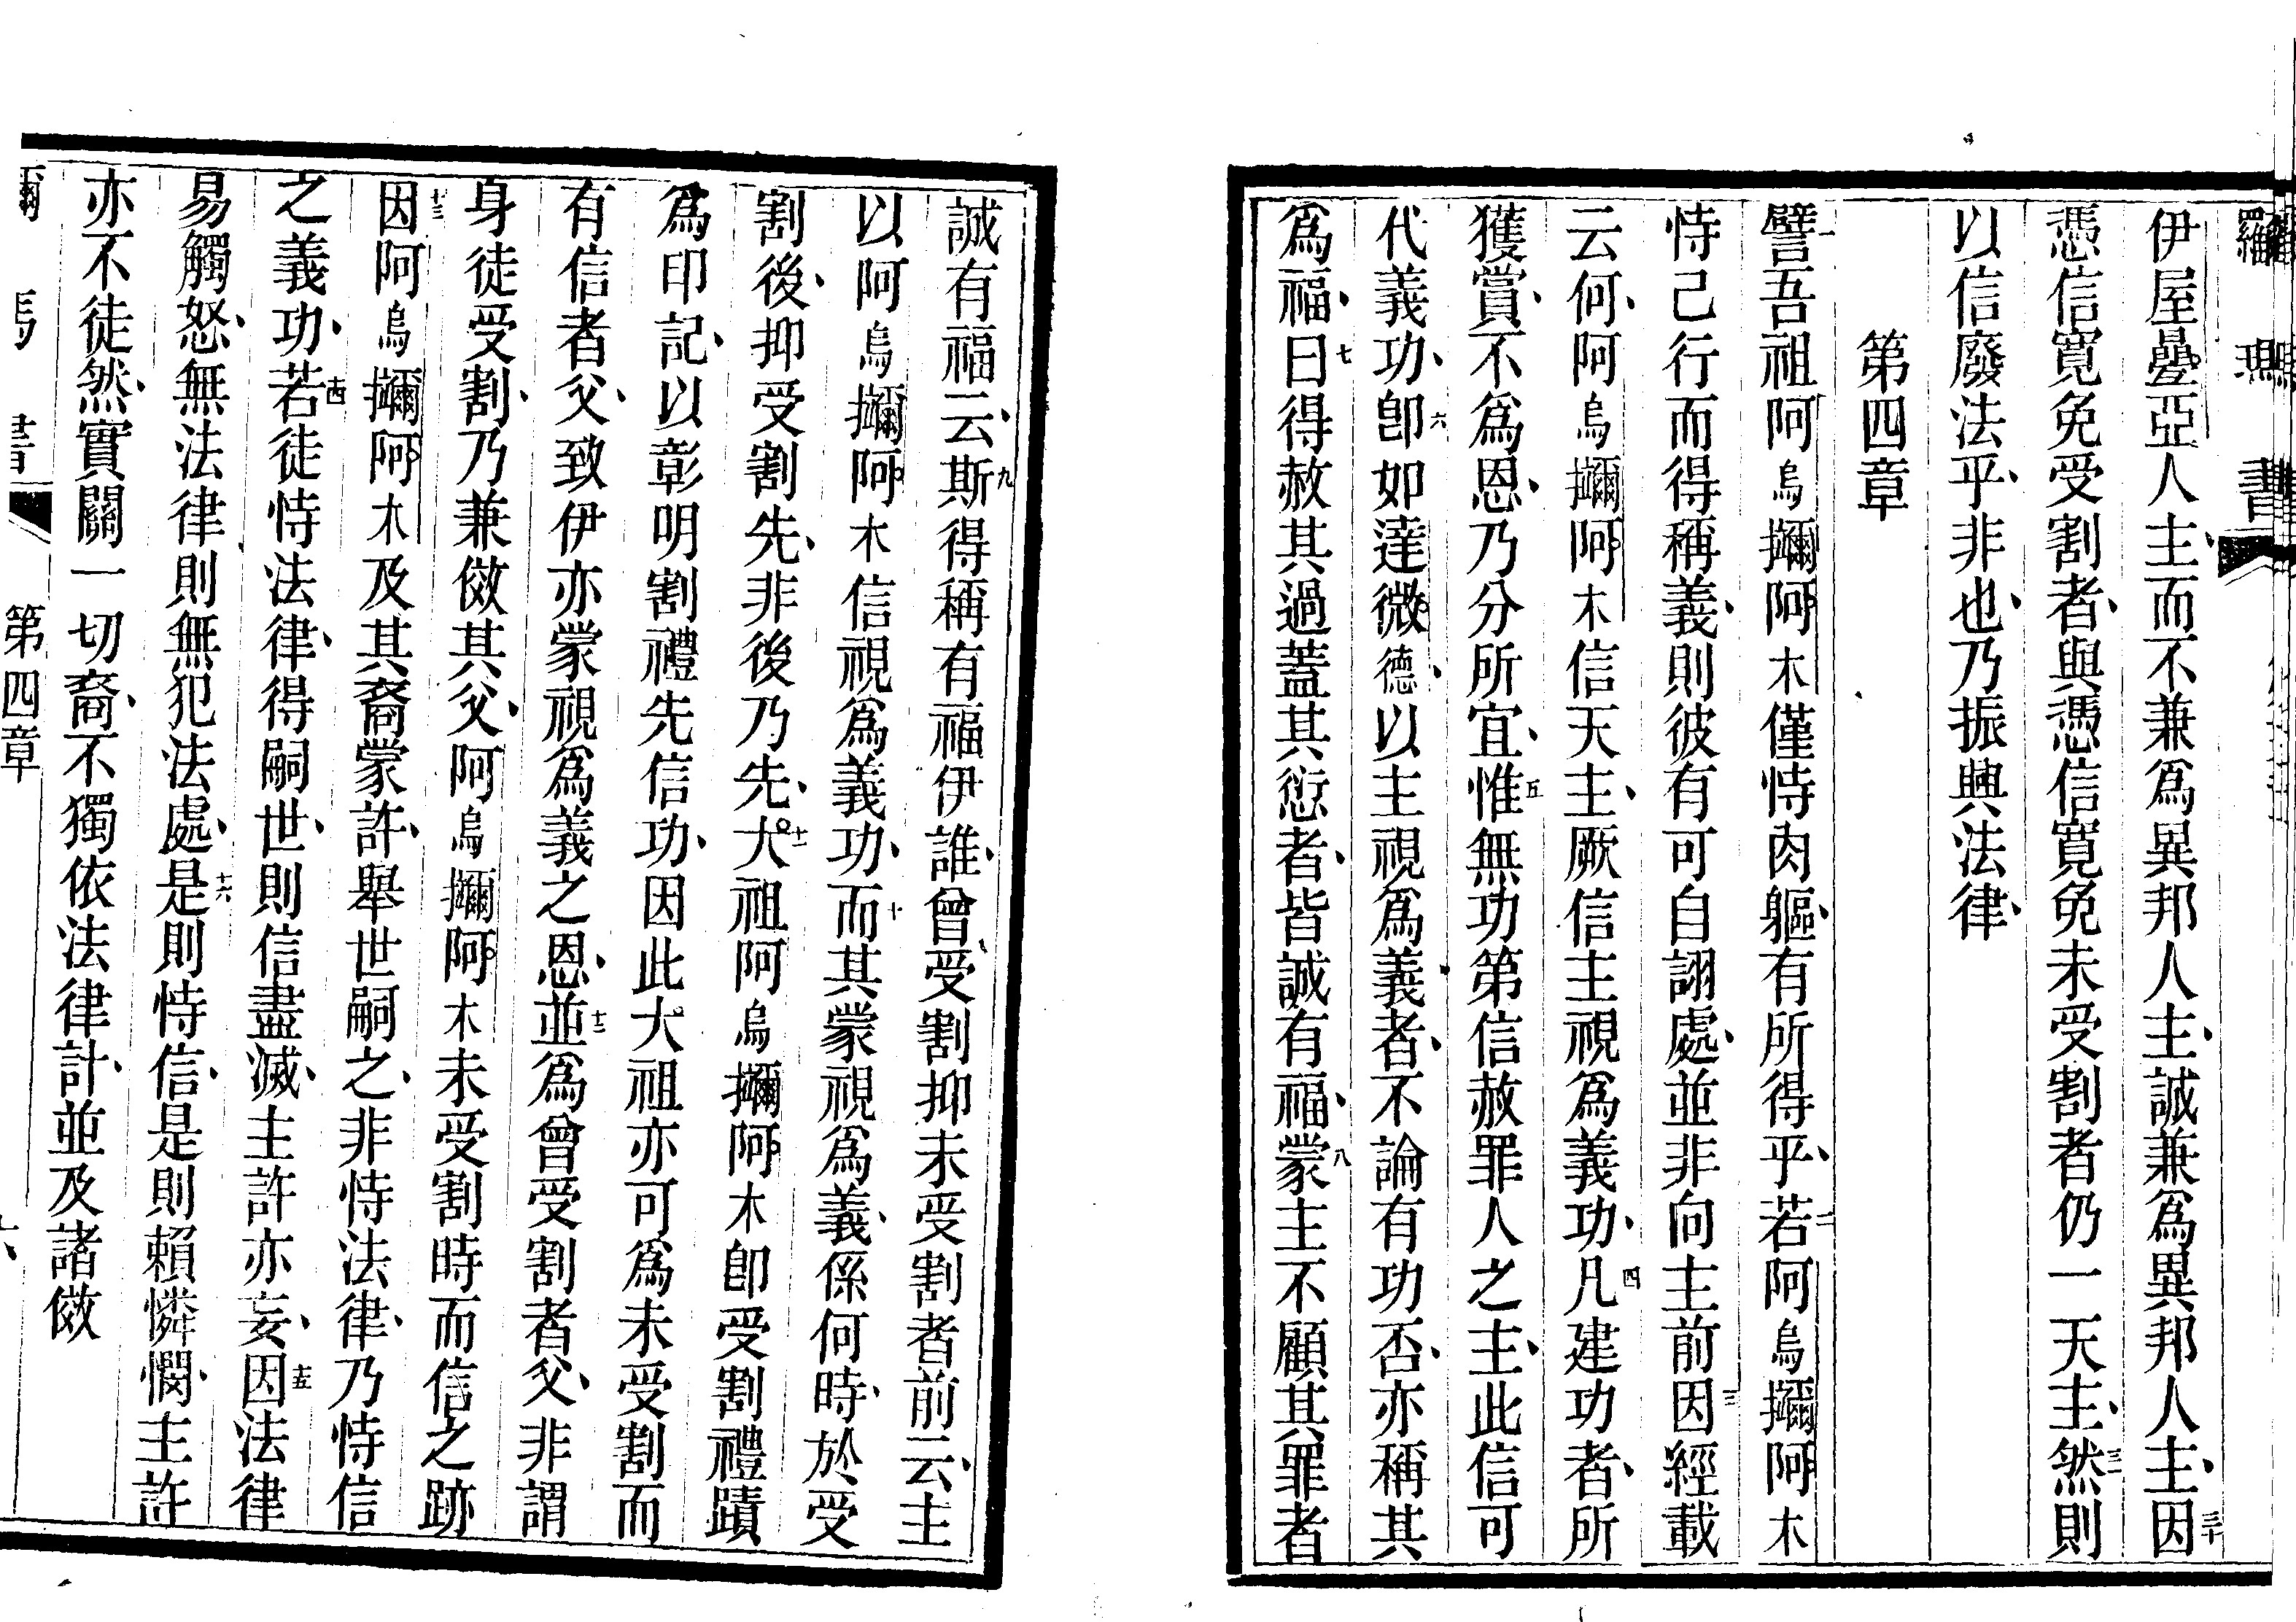 羅瑪書
伊屋疊亞人主、而不兼爲異邦人主、誠兼爲異邦人主、因三十
憑信寬免受割者、與憑信寬免未受割者仍一天主、然三一則
以信廢法乎、非也、乃振興法律、
第四章
譬一吾祖阿烏𭡝阿木僅恃肉軀、有所得乎、若二阿烏𭡝阿木
恃己行而得稱義、則彼有可自詡處、並非向主前因三經載
云何、阿烏𭡝阿木信天主、厥信主視爲義功、凡四建功者、所
獲賞、不爲恩、乃分所宜、惟五無功第信赦罪人之主、此信可
代義功、卽六如達微德、以主視爲義者、不論有功否、亦稱其
爲福、曰七得赦其過蓋其愆者、皆誠有福、蒙八主不顧其罪者
誠有福云、斯九得稱有福伊誰、曾受割抑未受割者前云、主
以阿烏𭡝阿木信視爲義功、而十其蒙視爲義、係何時、於受
割後、抑受割先、非後乃先、大十一祖阿烏𭡝阿木卽受割禮蹟
爲印記、以彰明割禮先信功、因此大祖亦可爲未受割而
有信者父、致伊亦蒙視爲義之恩、並十二爲曾受割者父、非謂
身徒受割、乃兼傚其父、阿烏𭡝阿木未受割時而信之跡
因十三阿烏𭡝阿木及其裔蒙許、舉世嗣之、非恃法律、乃恃信
之義功、若十四徒恃法律、得嗣世、則信盡滅、主許亦妄、因十五法律
易觸怒、無法律則無犯法處、是十六則恃信、是則賴憐憫、主許
亦不徒然、實關一切裔、不獨依法律計、並及諸傚
書 第四章 六